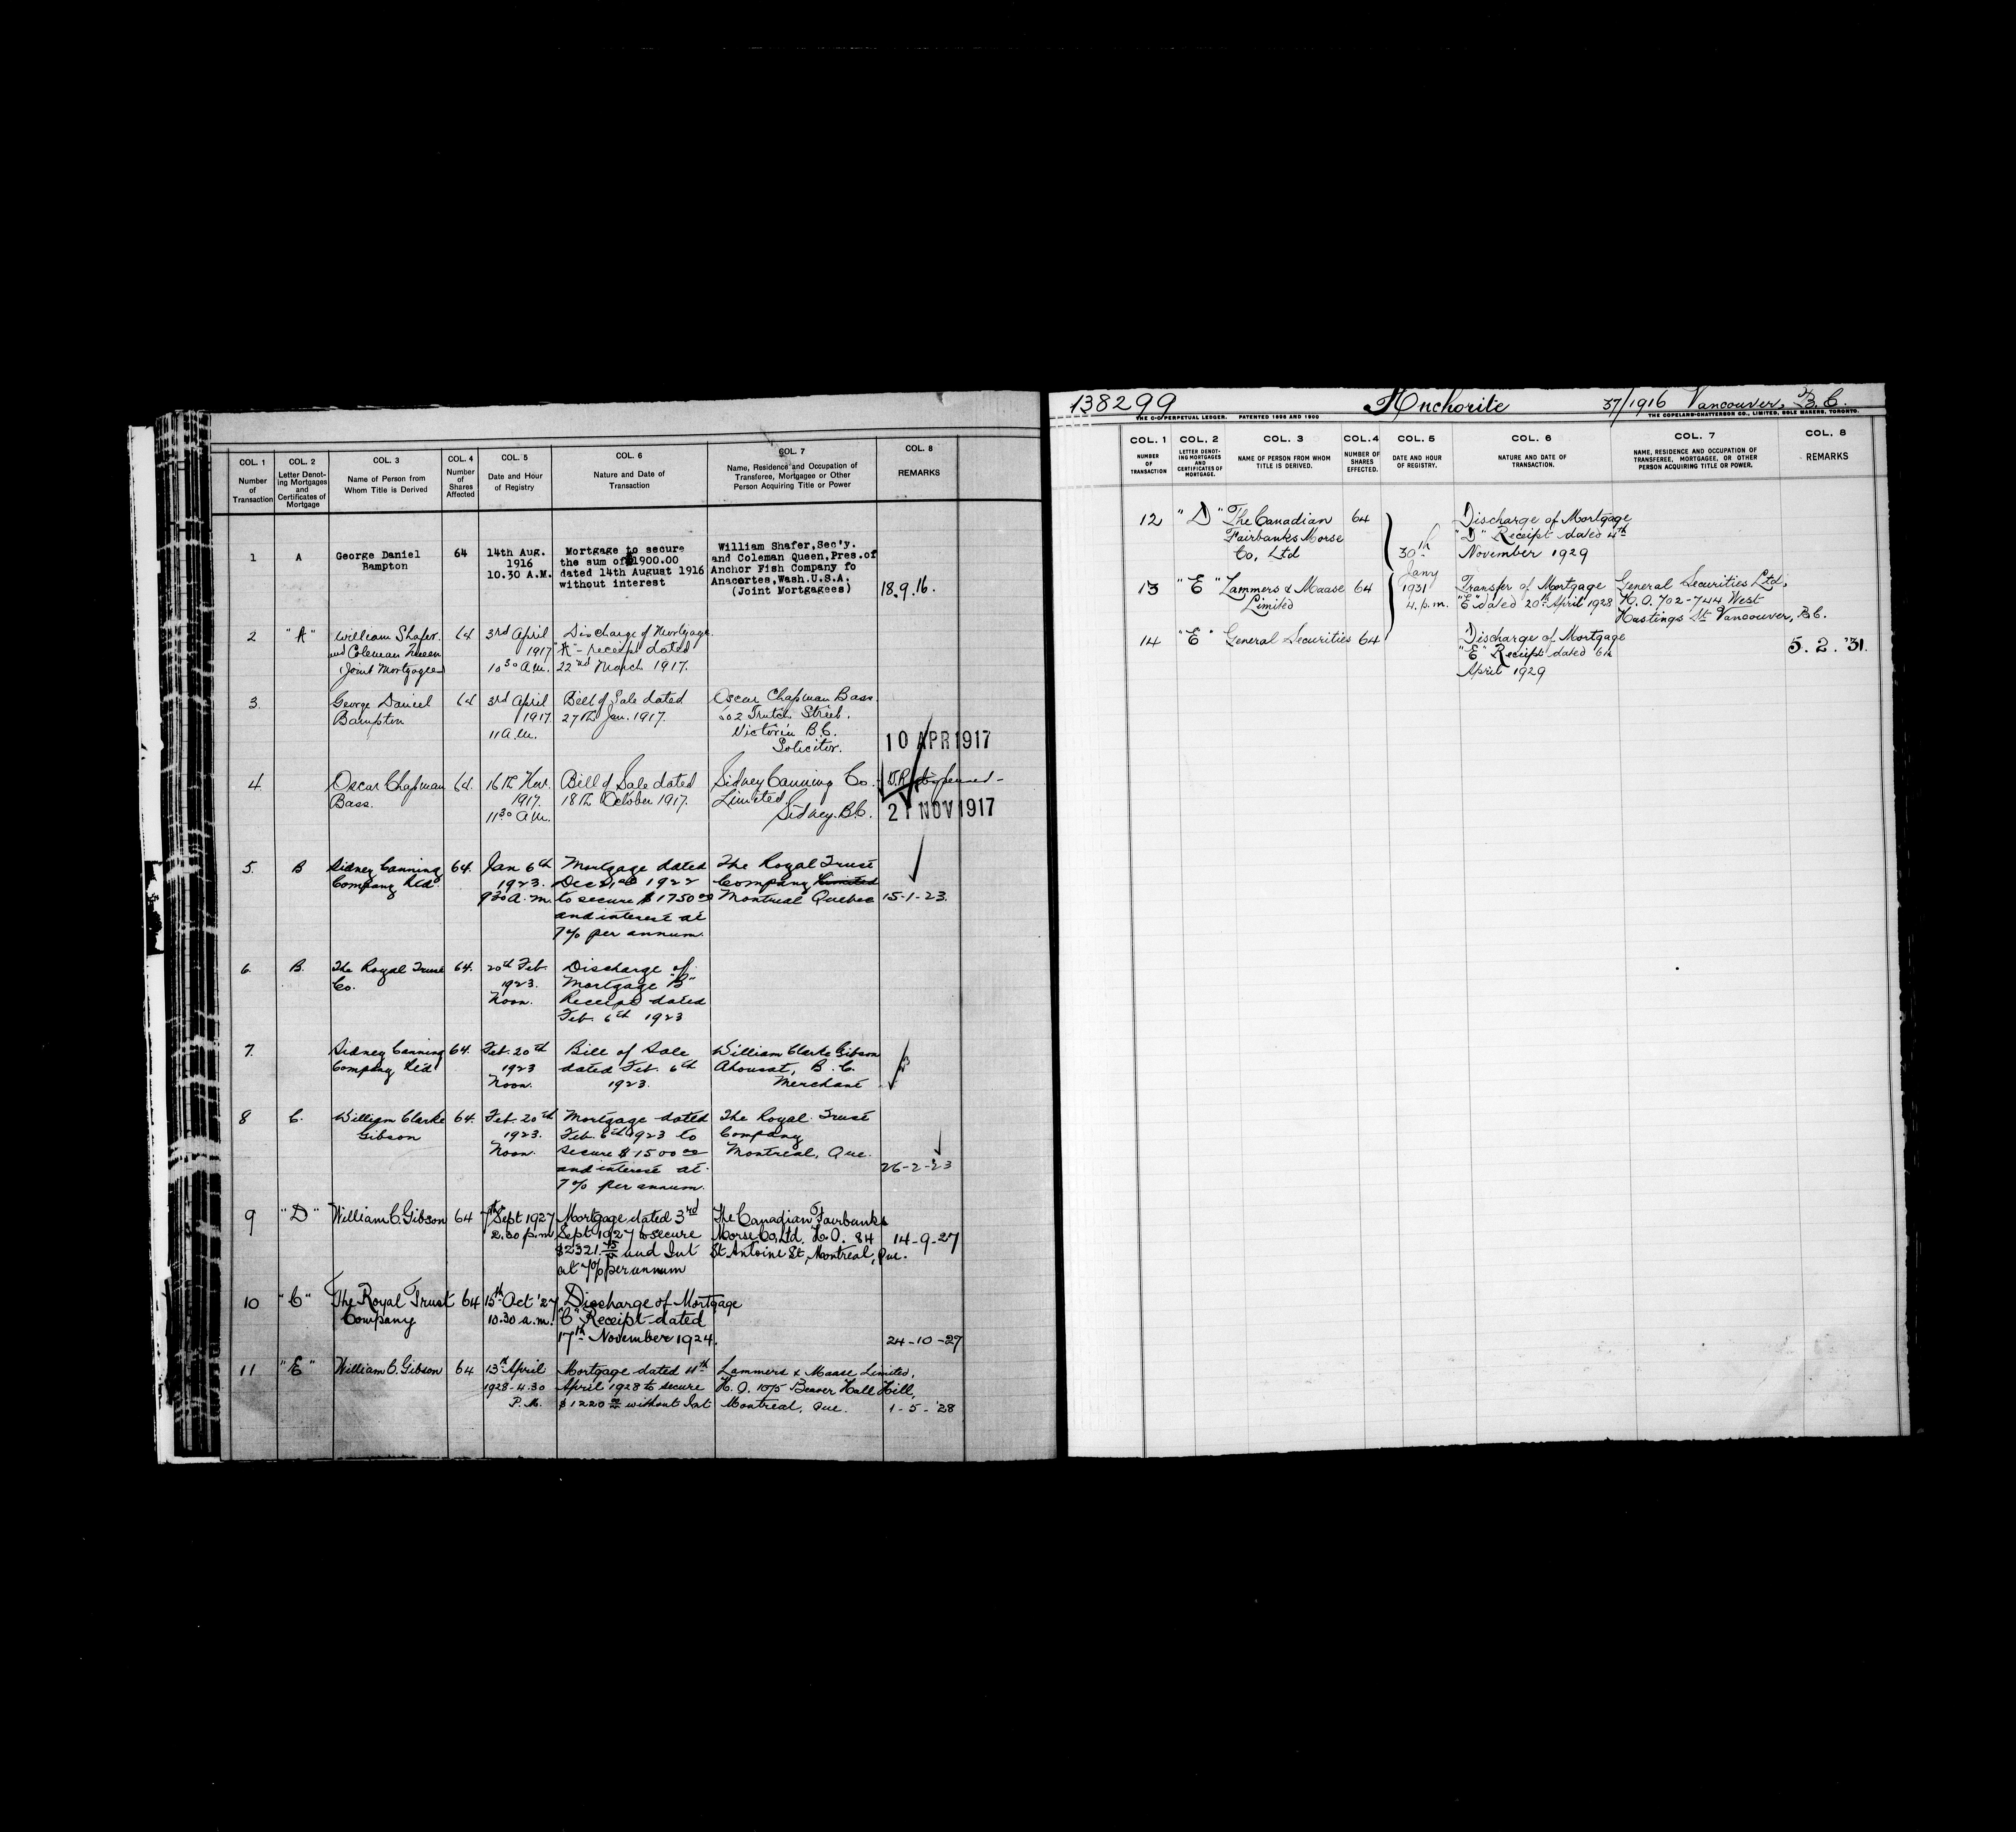 COL. 1
Number
of
Transaction
COL. 2
Letter Denot-
ing Mortgages
and
Certificates of
Mortgage
COL. 3
Name of Person from
Whom Title is Derived
COL. 4
Number
of
Shares
Affected
COL. 5
Date and Hour
of Registry
COL. 6
Nature and Date of
Transaction
COL. 7
Name, Residence and Occupation of
Transferee, Mortgagee or Other
Person Acquiring Title or Power
COL. 8
REMARKS
1
A
George Daniel
Bampton
64
14th Aug.
1916
10.30 A.M.
Mortgage to secure
the sum of $1900.00
dated 14th August 1916
without interest
William Shafer,Sec'y.
and Coleman Queen,Pres.of
Anchor Fish Company fo
Anacortes,Wash.U.S.A.
(Joint Mortgagees)
18.9.16.
2
"A"
William Shafer
and Coleman Queen
Joint Mortgagees
64
3rd April
1917
10 30 A.M.
Discharge of Mortgage
"A" - receipt dated
22nd March 1917.
3
George Daniel
Bampton
64
3rd April
1917
11 a.m.
Bill of Sale dated
27th Jan. 1917.
Oscar Chapman Bass
602 Trutch Street.
Victoria B.C.
Solicitor.
10 APR 1917
4
Oscar Chapman
Bass.
64
16th Nov.
1917.
11 30 a.m.
Bill of Sale dated
18th October 1917.
Sidney Canning Co.
Limited
Sidney. B.C.
21 NOV 1917
5.
B
Sidney Canning
Company Ltd.
64.
Jan 6th
1923.
9 30 a.m.
Mortgage dated
Dec 21st 1922
to secure $1750 00
and interest at
7% per annum.
The Royal Trust
Company Limited
Montreal Quebec
15-1-23.
6.
B.
The Royal Trust
Co.
64.
20th Feb.
1923.
Noon.
Discharge of
Mortgage "B"
Receipt dated
Feb. 6th 1923
7.
Sidney Canning
Company Ltd
64.
Feb. 20th
1923
Noon.
Bill of Sale
dated Feb. 6th
1923.
William Clarke Gibson
Ahousat, B.C.
Merchant
8
C.
William Clarke
Gibson
64.
Feb. 20th
1923.
Noon.
Mortgage dated
Feb. 6th 1923 to
secure $1500 00
and interest at
7% per annum.
The Royal Trust
Company
Montreal, Que.
26-2-23
9
"D"
William C. Gibson
64
7th Sept 1927
2.30 p.m.
Mortgage dated 3rd
Sept 1927 to secure
$2321. and Int
at 7% per annum
The Canadian Fairbanks
Morse Co, Ltd. H.O. 84
St Antoine St, Montreal, Que.
14-9-27
10
"C"
The Royal Trust
Company
64
15th Oct '27
10.30 a.m.
Discharge of Mortgage
"C" Receipt dated
17th November 1924.
24-10-27
11
"E"
William C. Gibson
64
13th April
1928-4.30
P.M.
Mortgage dated 11th
April 1928 to secure
$1220 without Int
Lammers & Maase Limited,
H.O. 1075 Beaver Hall Hill,
Montreal, Que.
1-5-'28
138299
Anchorite
37/1916 Vancouver, B.C.
THE C-C PERPETUAL LEDGER. PATENTED 1906 AND 1900
THE COPELAND-CHATTERSON CO., LIMITED, SOLE MAKERS, TORONTO.
COL. 1
NUMBER
OF
TRANSACTION
COL. 2
LETTER DENOT-
ING MORTGAGES
AND
CERTIFICATES OF
MORTGAGE.
COL. 3
NAME OF PERSON FROM WHOM
TITLE IS DERIVED.
COL. 4
NUMBER OF
SHARES
EFFECTED.
COL. 5
DATE AND HOUR
OF REGISTRY.
COL. 6
NATURE AND DATE OF
TRANSACTION.
COL. 7
NAME, RESIDENCE AND OCCUPATION OF
TRANSFEREE, MORTGAGEE, OR OTHER
PERSON ACQUIRING TITLE OR POWER.
COL. 8
REMARKS
12
"D"
The Canadian
Fairbanks Morse
Co, Ltd
64
30th
Jany
1931
4. p.m.
Discharge of Mortgage
"D" Receipt dated 4th
November 1929
13
"E"
Lammers & Maase
Limited
64
Transfer of Mortgage
"E" dated 20th April 1928
General Securities Ltd,
H.O. 702-744 West
Hastings St. Vancouver, B.C.
14
"E"
General Securities
64
Discharge of Mortgage
"E" Receipt dated 6th
April 1929
5.2.'31.